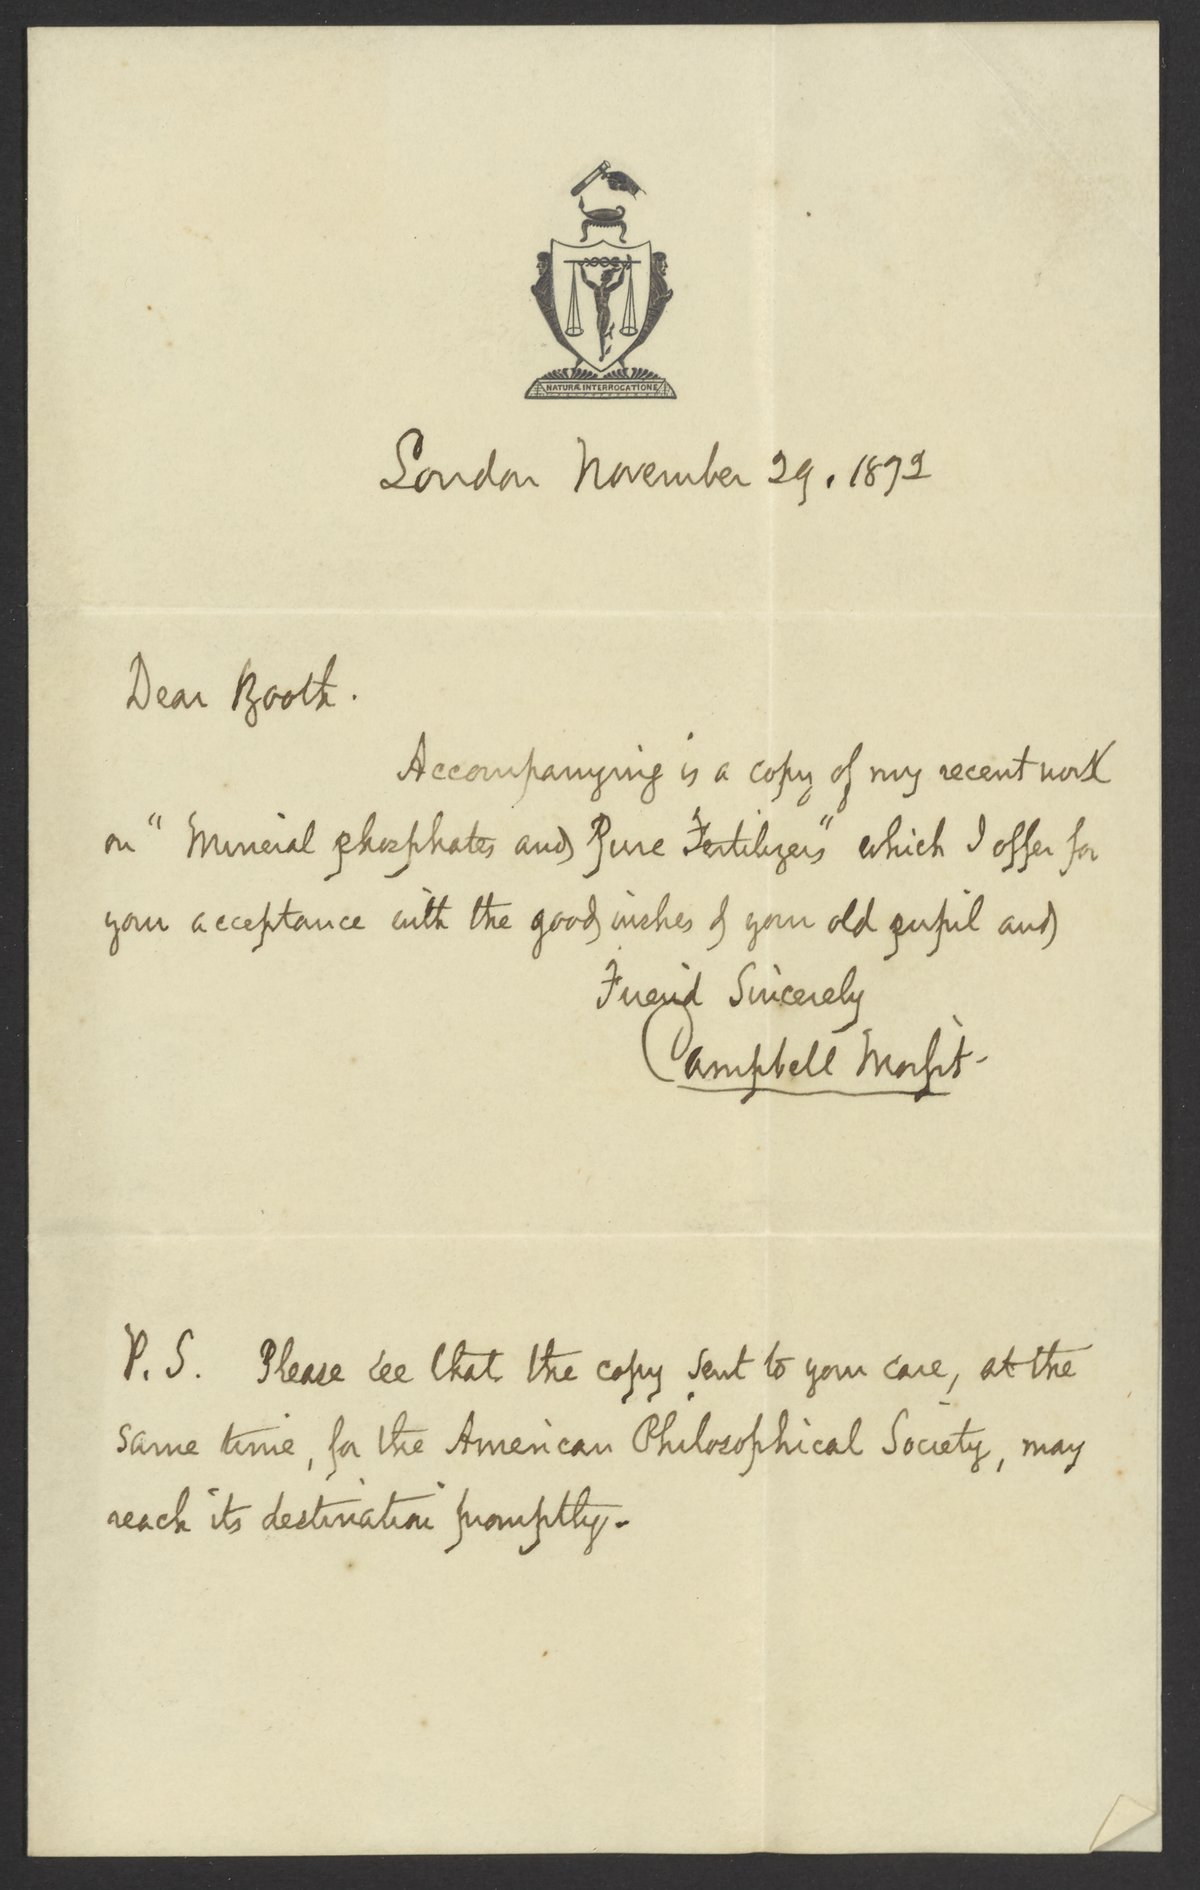 NATURÆ INTERROCATIONE
London November 29. 1872
Dear Booth.
Accompanying is a copy of my recent work
on "Mineral phosphates and Pure Fertilizers" which I offer for
your acceptance with the good wishes of your old pupil and
Friend Sincerely
Campbell Morfit-
P. S. Please see that the copy sent to your care, at the
same time, for the American Philosophical Society, may
reach its destination promptly.-